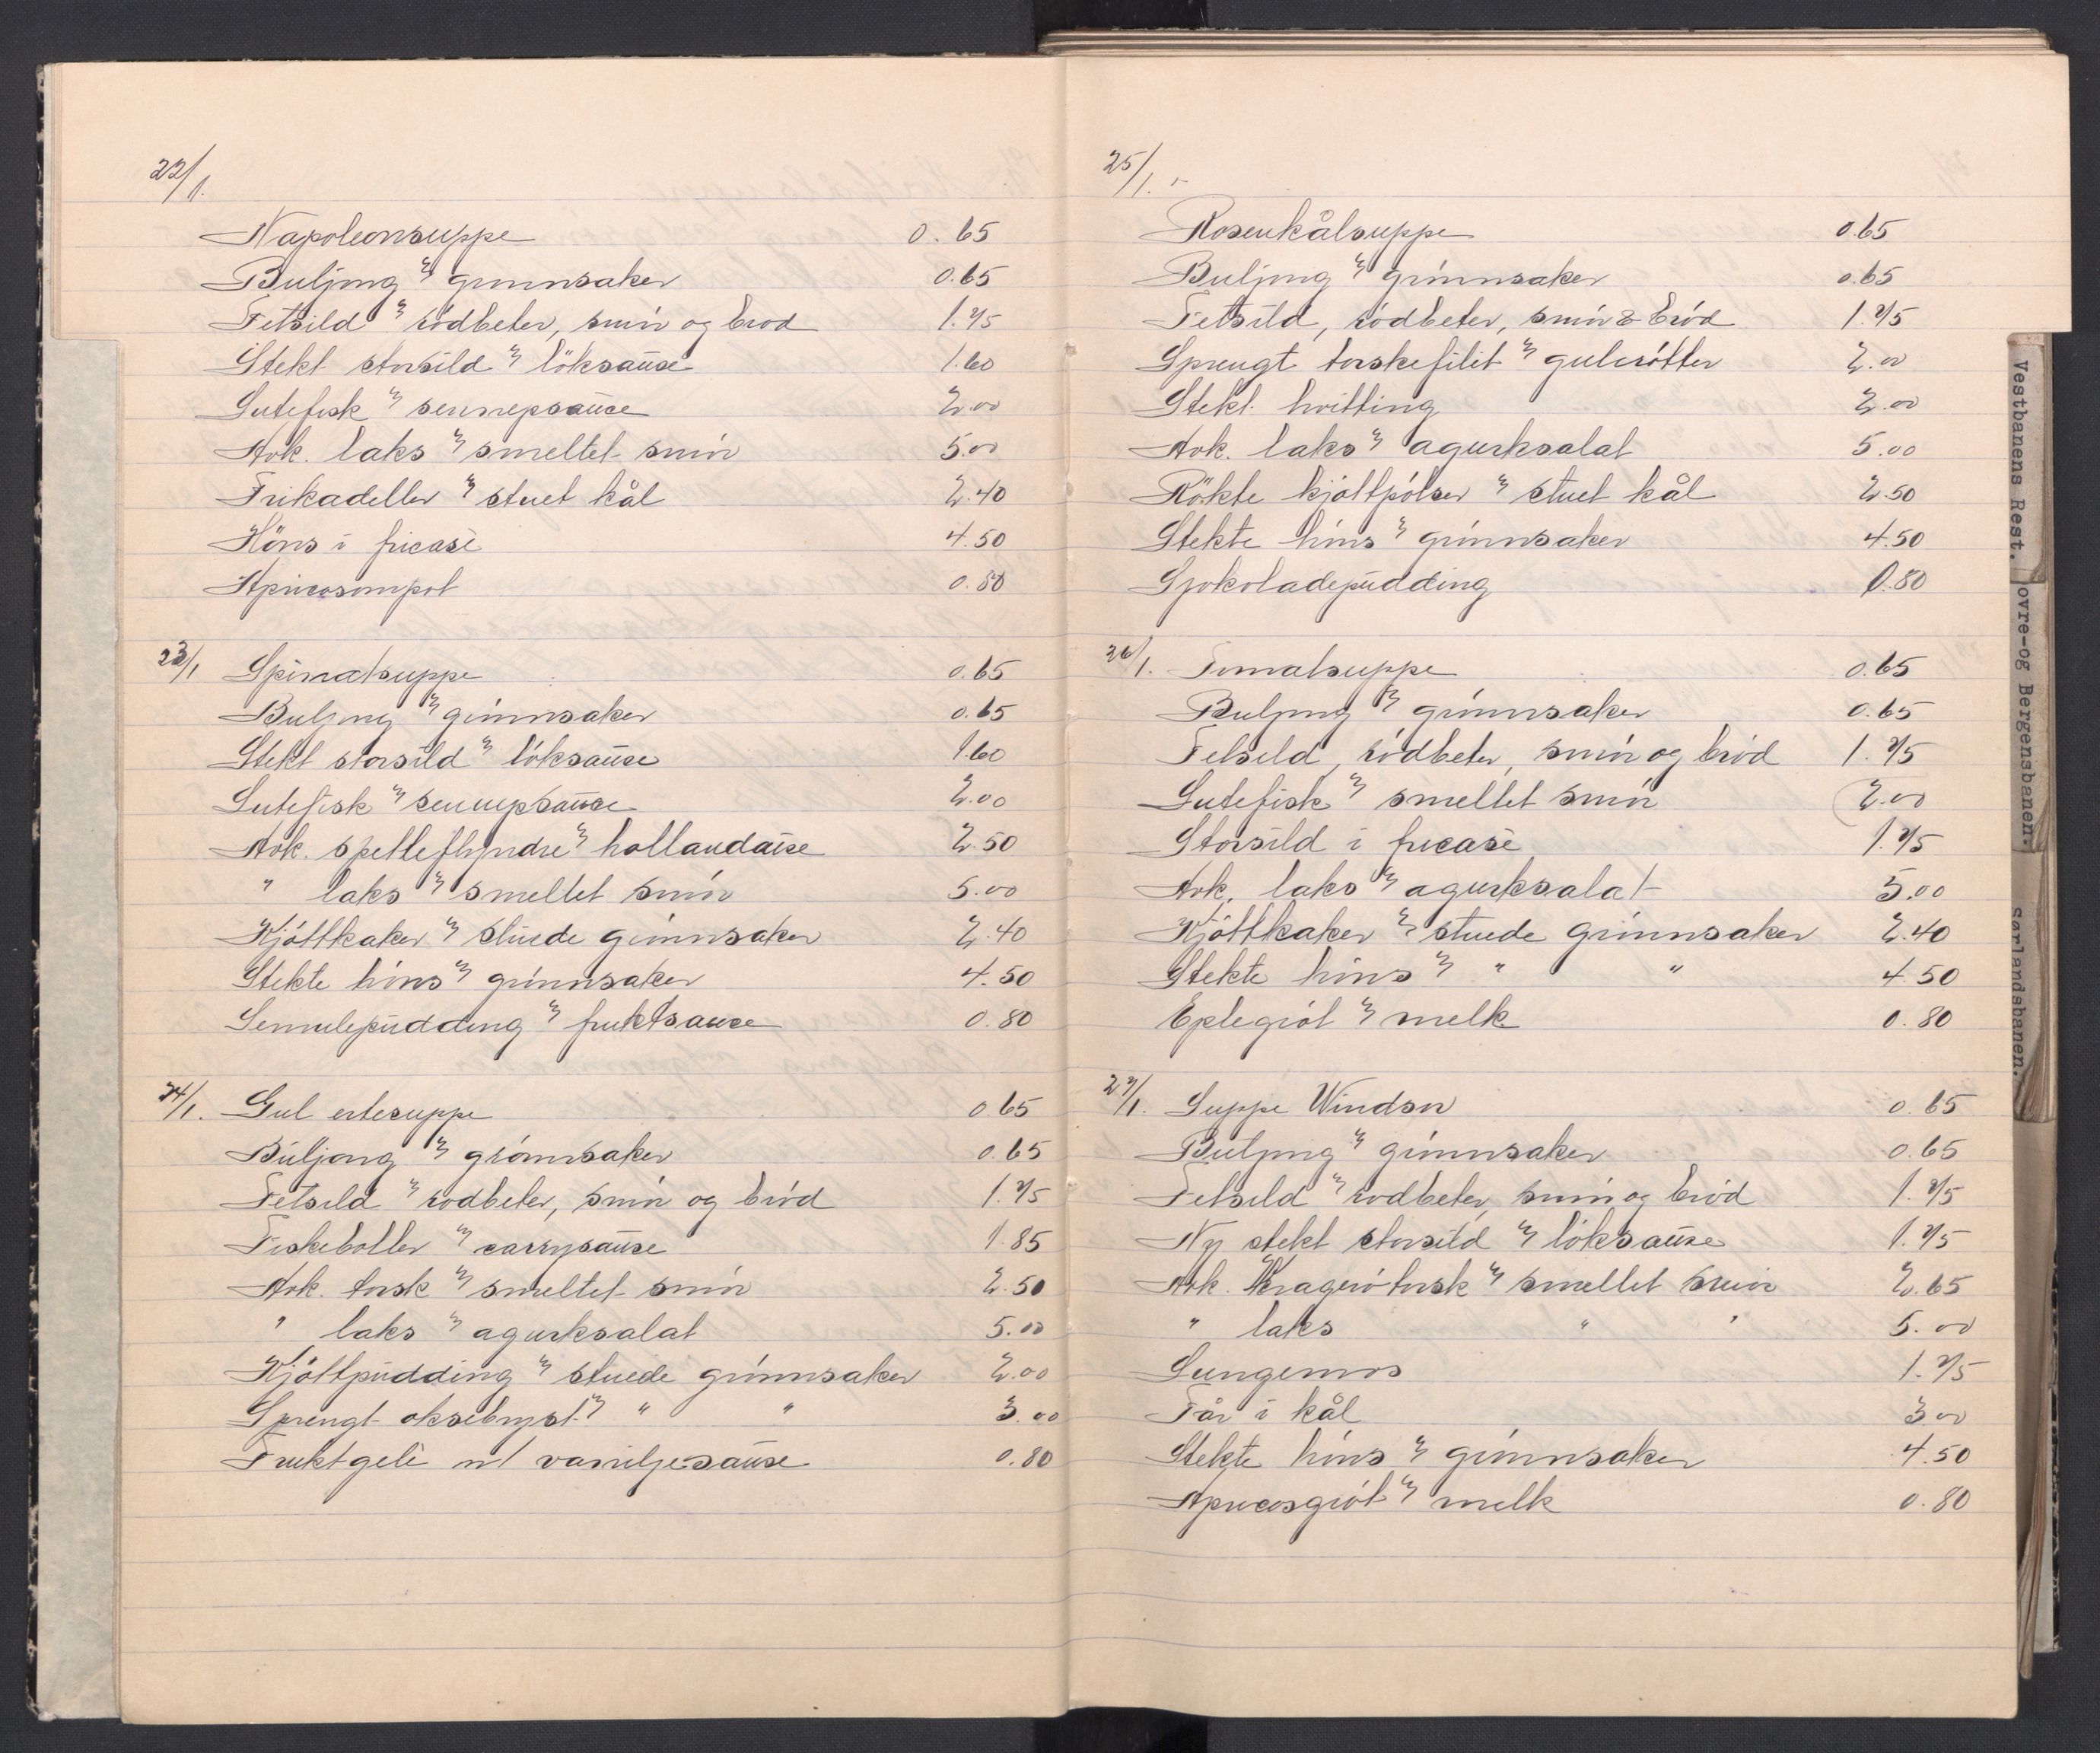 22/1.
Napoleonsuppe 0.65
Buljong m/ grønnsaker 0.65
Fetsild m/ rødbeter, smør og brød 1.75
Stekt storsild m/ löksause 1.60
Lutefisk m/ sennepsause 2.00
Avk. laks m/ smeltet smør 5.00
Frikadeller m/ stuet kål 2.40
Höns i fricasè 4.50
Apricoscompot 0.80
23/1 Spinatsuppe 0.65
Buljong m/ grønnsaker 0.65
Stekt storsild m/ löksause 1.60
Lutefisk m/ sennepsause 2.00
Avk. spetteflyndre m/ hollandaise 2.50
" laks m/ smeltet smør 5.00
Kjøttkaker m/ stuede grønnsaker 2.40
Stekte høns m/ grønnsaker 4.50
Semulepudding m/ fruktsause 0.80
24/1. Gul ertesuppe 0.65
Buljong m/ grønnsaker 0.65
Fetsild m/ rødbeter, smør og brød 1.75
Fiskeboller m/ carrysause 1.85
Avk. torsk m/ smeltet smør 2.50
" laks m/ agurksalat 5.00
Kjøttpudding m/ stuede grønnsaker 2.00
Sprengt oksebryst m/ " " 3.00
Fruktgelè m/ vaniljesause 0.80
25/1.
Rosenkålsuppe 0.65
Buljong m/ grønnsaker 0.65
Fetsild, rødbeter, smør & brød 1.75
Sprengt torskefilet m/ gulerøtter 2.00
Stekt hvitting 2.00
Avk. laks m/ agurksalat 5.00
Rökte kjøttpølser m/ stuet kål 2.50
Stekte høns m/ grønnsaker 4.50
Sjokoladepudding 0.80
26/1. Tomatsuppe 0.65
Buljong m/ grønnsaker 0.65
Fetsild, rødbeter, smør og brød 1.75
Lutefisk m/ smeltet smør 2.00
Storsild i fricasè 1.75
Avk. laks m/ agurksalat 5.00
Kjøttkaker m/ stuede grønnsaker 2.40
Stekte høns m/ " " 4.50
Eplegrøt m/ melk 0.80
27/1. Suppe Windsor 0.65
Buljong m/ grønnsaker 0.65
Fetsild m/ rødbeter, smør og brød 1.75
Ny stekt storsild m/ löksause 1.75
Avk. Kragerøtorsk m/ smeltet smør 2.65
" laks " " 5.00
Lungemos 1.75
Får i kål 3.00
Stekte høns m/ grønnsaker 4.50
Apricosgrøt m/ melk 0.80
Vestbanens Rest.
ovre-og Bergensbanen.
Sørlandsbanen.